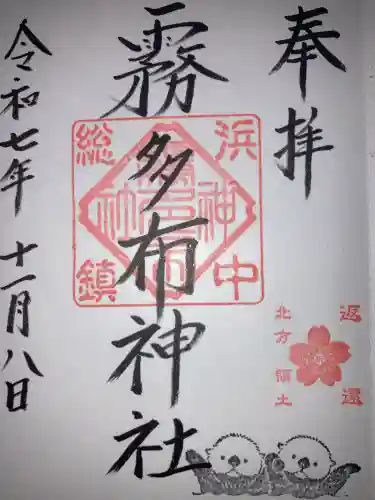 奉拝
霧多布神社
令和七年 十一月八日
浜中
総鎮
神社
霧多布
北方領土
返還